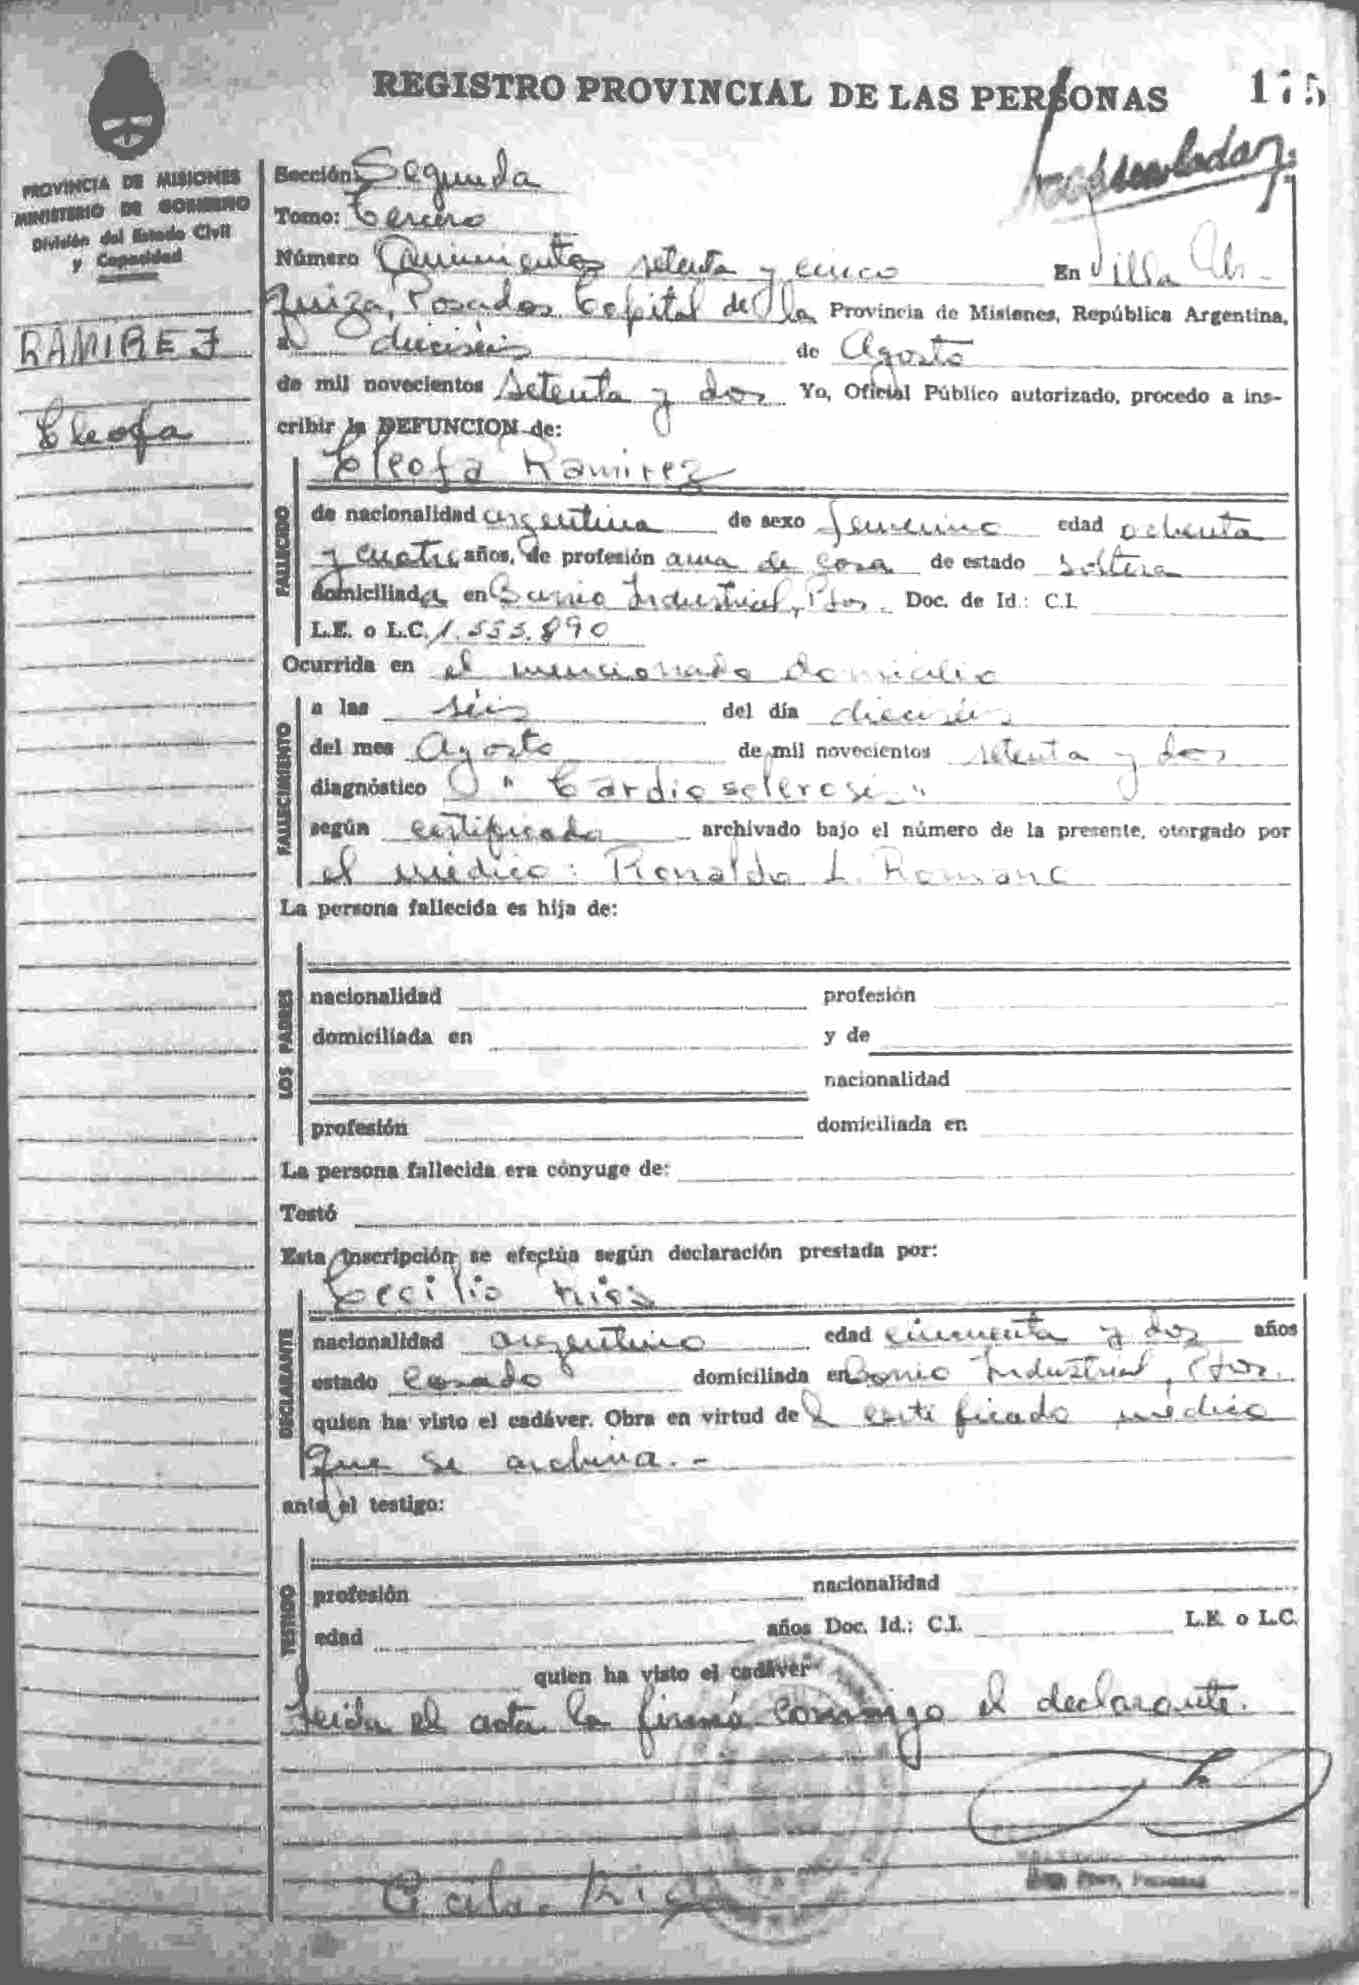 REGISTRO PROVINCIAL DE LAS PERSONAS 175
PROVINCIA DE MISIONES
MINISTERIO DE GOBIERNO
División del Estado Civil
y Capacidad
RAMIREZ
Cleofa
Sección: Segunda
Tomo: Tercero
Número Quinientos setenta y cinco En Villa Ur-
quiza, Posadas Capital de la Provincia de Misiones, República Argentina,
a dieciséis de Agosto
de mil novecientos setenta y dos Yo, Oficial Público autorizado, procedo a ins-
cribir la DEFUNCION de:
Cleofa Ramirez
FALLECIDO
de nacionalidad argentina de sexo femenino edad ochenta
y cuatro años, de profesión ama de casa de estado soltera
domiciliada en Barrio Industrial, Pdas. Doc. de Id.: C.I.
L.E. o L.C. 1.555.890
Ocurrida en el mencionado domicilio
FALLECIMIENTO
a las séis del día dieciséis
del mes Agosto de mil novecientos setenta y dos
diagnóstico "Cardiosclerosis"
según certificado archivado bajo el número de la presente, otorgado por
el médico: Ronaldo L. Romano
La persona fallecida es hija de:
LOS PADRES
nacionalidad profesión
domiciliada en y de
nacionalidad
profesión domiciliada en
La persona fallecida era cónyuge de:
Testó
Esta inscripción se efectúa según declaración prestada por:
Cecilio
DECLARANTE
nacionalidad argentino edad cincuenta y dos años
estado casado domiciliada en Barrio Industrial, Pdas.
quien ha visto el cadáver. Obra en virtud del certificado médico
que se archiva.-
ante el testigo:
TESTIGO
profesión nacionalidad
edad años Doc. Id.: C.I. L.E. o L.C.
quien ha visto el cadáver
Leida el acta la firmó conmigo el declarante.